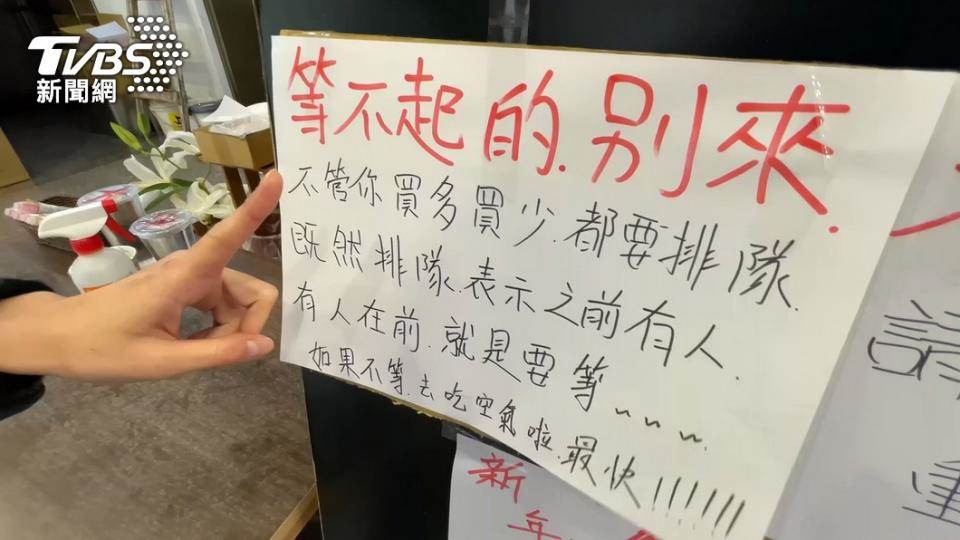 TVBS
新聞網
等不起的.別來.
不管你買多買少.都要排隊.
既然排隊.表示之前有人.
有人在前.就是要等~~~.
如果不等.去吃空氣啦.最快!!!!!!
新
年